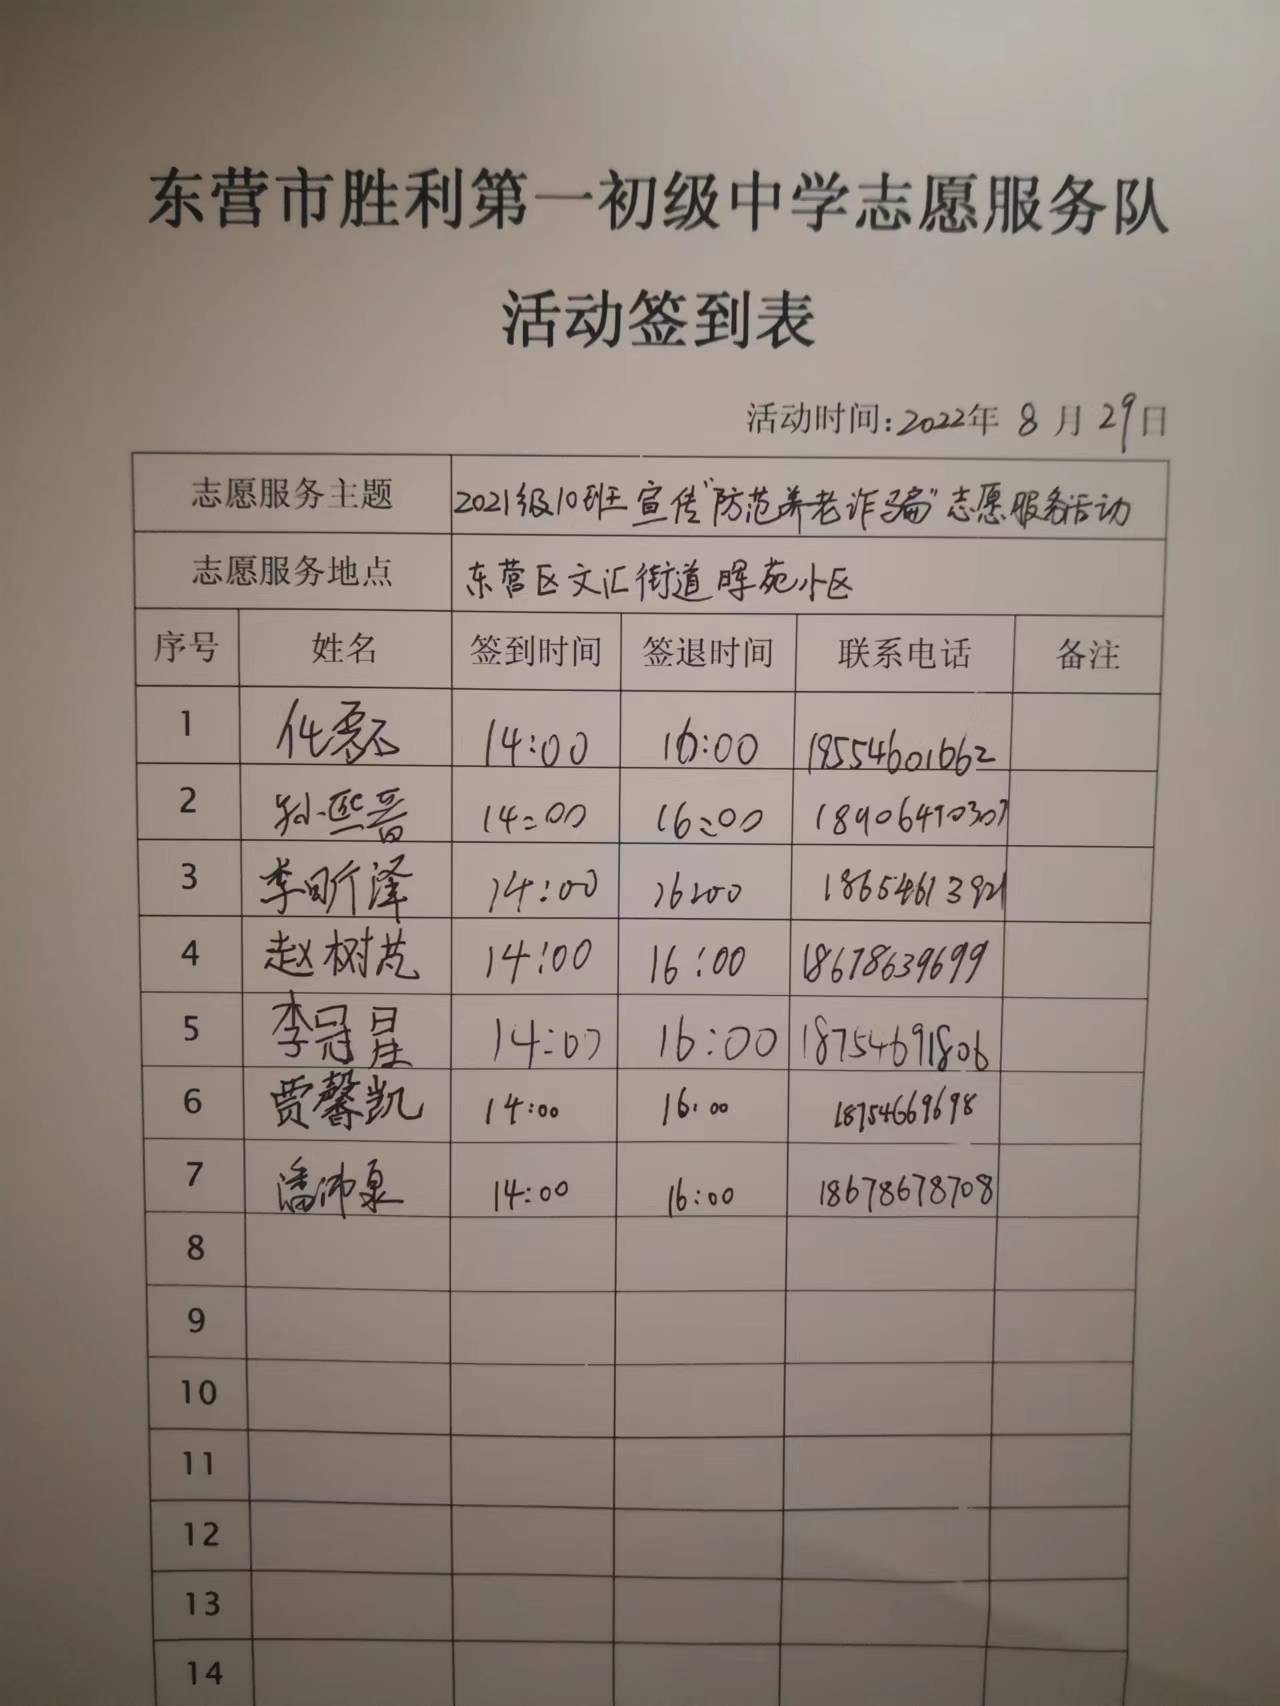 东营市胜利第一初级中学志愿服务队
活动签到表
活动时间:2022年 8 月 29日
志愿服务主题 2021级10班宣传"防范养老诈骗"志愿服务活动
志愿服务地点 东营区文汇街道晖苑小区
序号 姓名 签到时间 签退时间 联系电话 备注
1 14:00 16:00 19554601662
2 孙熙晋 14:00 16:00 18906490307
3 李昕泽 14:00 16:00 18654613921
4 赵树芃 14:00 16:00 18678639699
5 李冠星 14:00 16:00 18754691806
6 贾馨凯 14:00 16:00 18754669698
7 潘沛泉 14:00 16:00 18678678708
8
9
10
11
12
13
14